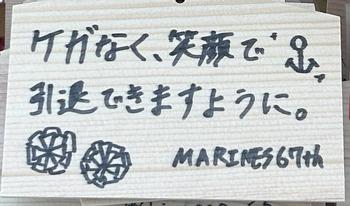 ケガなく、笑顔で
引退できますように。
MARINES67th